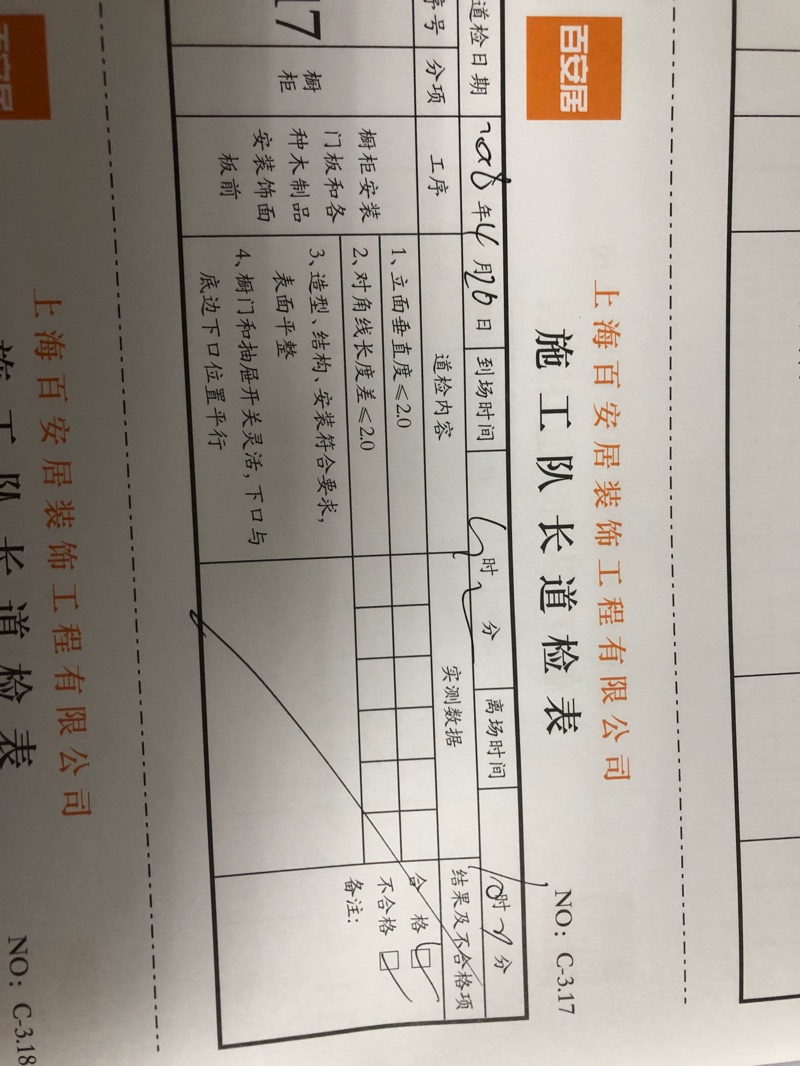 百安居
上海百安居装饰工程有限公司
施工队长道检表
NO：C-3.17
道检日期 2018年4月26日 到场时间 时 分 离场时间 10时 分
序号 分项 工序 道检内容 实测数据 结果及不合格项
17 橱柜 橱柜安装门板和各种木制品安装饰面板前
1、立面垂直度≤2.0
2、对角线长度差≤2.0
3、造型、结构、安装符合要求，
表面平整
4、橱门和抽屉开关灵活，下口与
底边下口位置平行
合 格 □
不合格 □
备注：
百安居
上海百安居装饰工程有限公司
施工队长道检表
NO：C-3.18